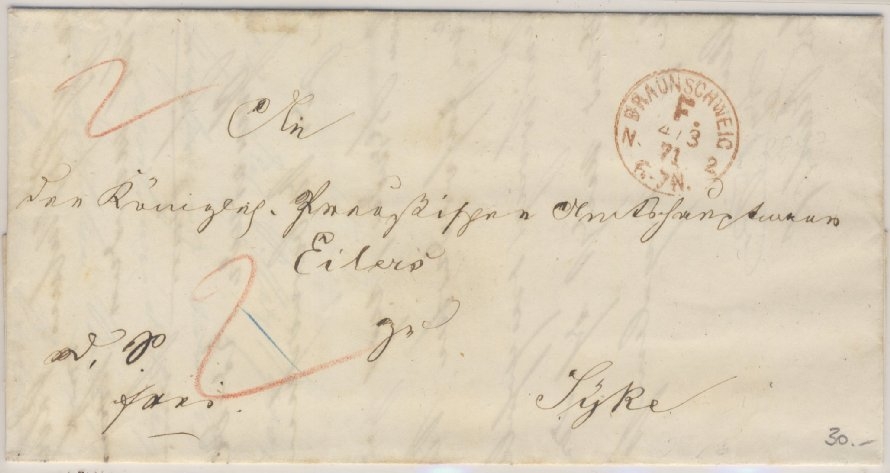 2
An
BRAUNSCHWEIG
F.
4/3
71
6-7N.
N. 2
den Königlich. Preußischen Amtshauptmann
Eilers
2
zu
frei.
Syke
30.–